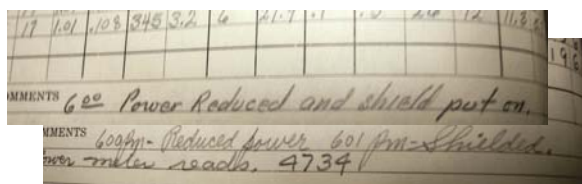 17 1.01 .108 345 3.2 6 21.7 .1 12 11.8
COMMENTS 6 00 Power Reduced and shield put on.
MMENTS 600pm- Reduced power 601 pm- Shielded.
ower meter reads. 4734